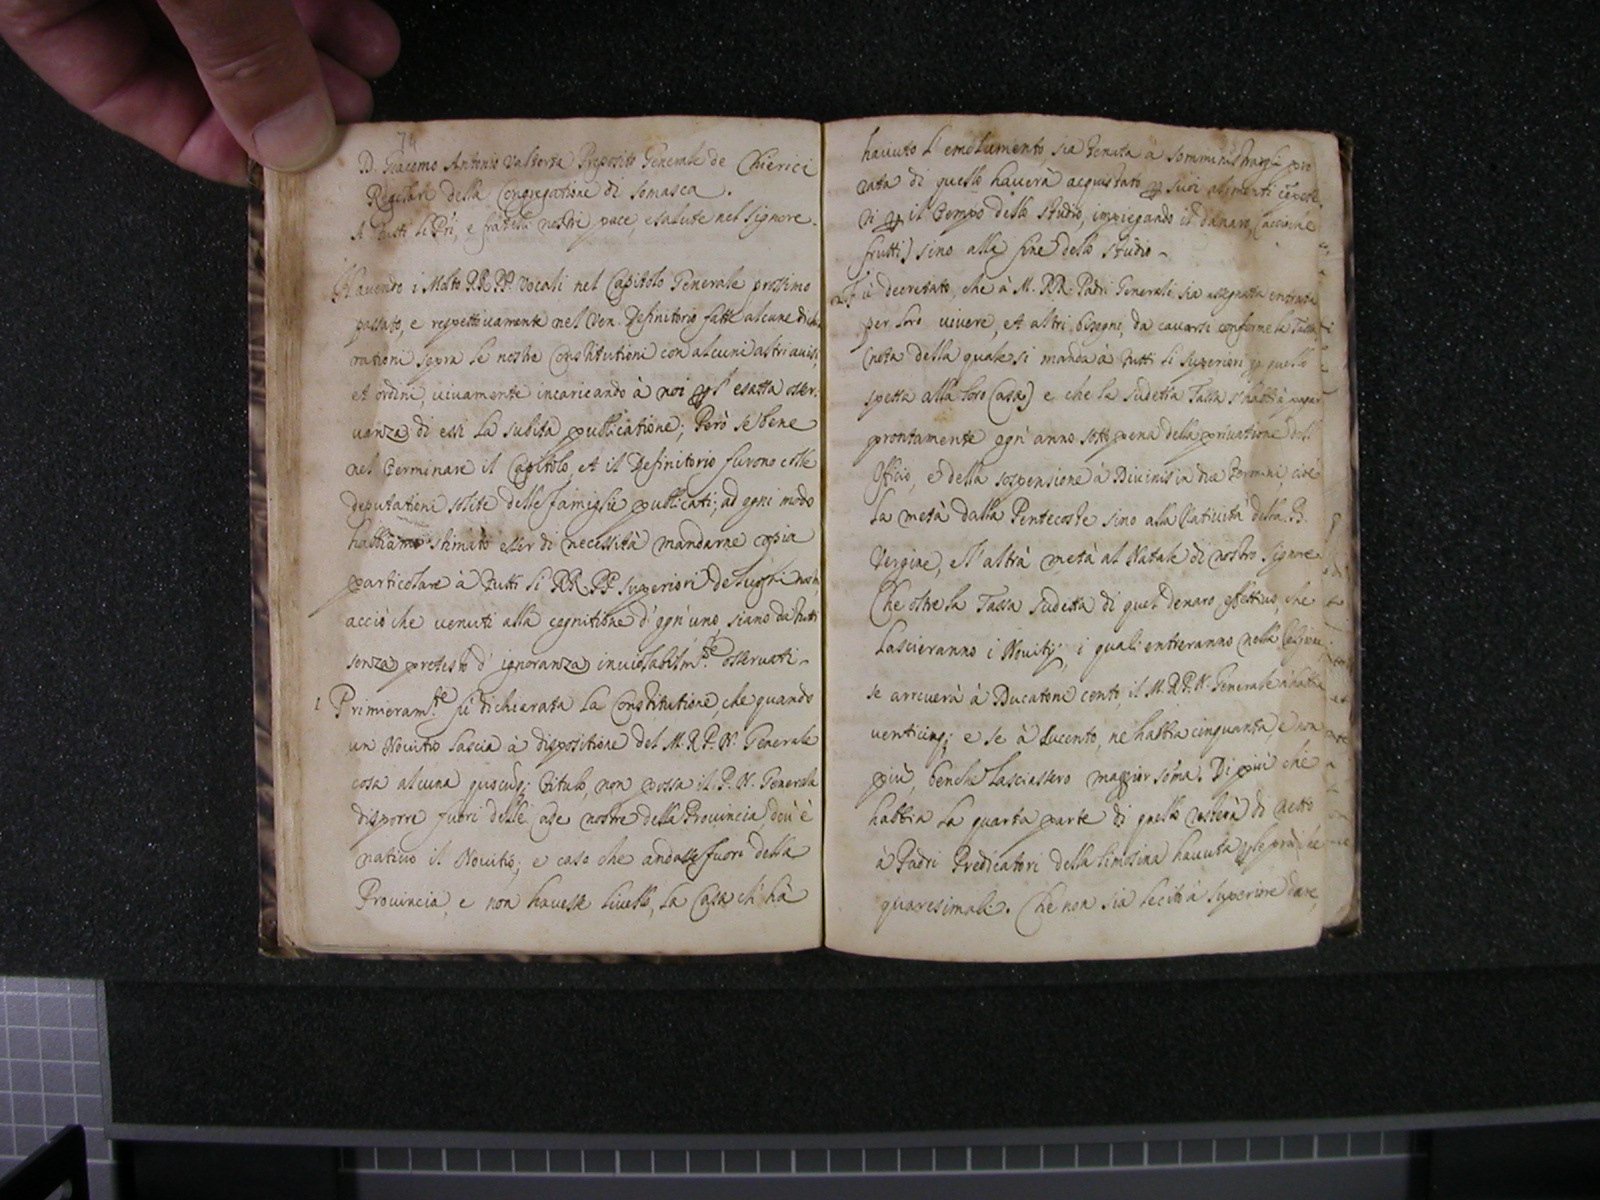 74
D. Giacomo Antonio Valtorta Preposito Generale de Chierici
Regolari della Congregatione di Somasca.
A tutti li Pri, e fratelli nostri pace, e salute nel Signore.
Havendo i Molto RR. PP. Vocali nel Capitolo Generale prossimo
passato, e respettivamente nel Ven. Definitorio fatte alcune dichia
rationi sopra le nostre Constitutioni con alcuni altri avisi,
et ordini, vivamente incaricando à noi p l'esatta osser.
vanza di essi la subita publicatione; Però se bene
nel terminare il Capitolo, et il Definitorio furono colle
deputationi solite delle famiglie publicati; ad ogni modo
habbiamo stimato esser di necessità mandarne copia
particolare à tutti li RR. PP. superiori de luoghi nostri
acciò che venuti alla cognitione d'ogn'uno, siano da tutti
senza pretesto d'ignoranza inviolabilm.te osservati.
1 Primieram.te fù dichiarata la Constitutione, che quando
un Novitio lascia à dispositione del M. R. P. N. Generale
cosa alcuna quocunq; titulo, non possa il P. N. Generale
disporre fuori delle case nostre della Provincia, dou'è
nativo il Novitio; e caso che andasse fuori della
Provincia, e non havesse livello, la Casa ch'hà
havuto l'emolumento, sia tenuta à somministrargli pro
rata di quello haverà acquistato p suoi alimenti
p il tempo dello studio, impiegando il danaro,
frutti) sino alla fine dello studio.
2 Fù decretato, che à M. RR. Padri Generali sia assegnata entrata
per loro vivere, et altri bisogni, da cavarsi conforme la Tassa
(nota della quale si manda à tutti li superiori p quello
spetta alla loro Casa) e che la sudetta Tassa s'habbi à pagar
prontamente ogn'anno sotto pena della privatione dell'
Officio, e della sospensione à Divinis in due termini, cioè
la metà dalla Pentecoste sino alla Natività della B.
Vergine, e l'altra metà al Natale di nostro Signore
Che oltre la Tassa sudetta di quel denaro effettivo, che
lasciaranno i Novitij, i quali entreranno nella
se arriverà à Ducatoni cento, il M. R. P. N. Generale n'habbia
venticinq; e se à ducento, ne habbia cinquanta, e non
più, benche lasciassero maggior soma. Di più che
habbia la quarta parte di quello resterà di netto
à Padri Predicatori della limosina havuta p le prediche
quaresimali. Che non sia lecito à superiore dare,